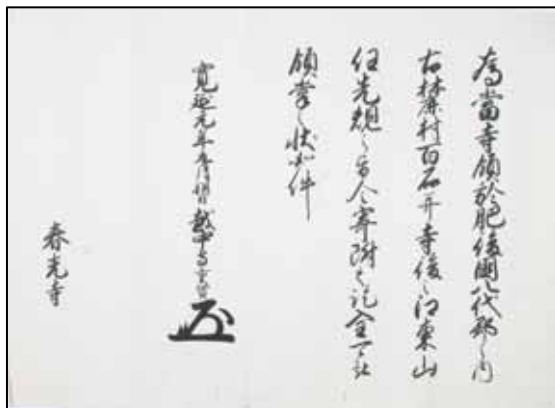 為當寺領於肥後國八代郡之内
古麓村百石并寺後之江東山
任先規之旨令寄附之訖全可社
領掌之状如件
寛延元年 越中守
春光寺